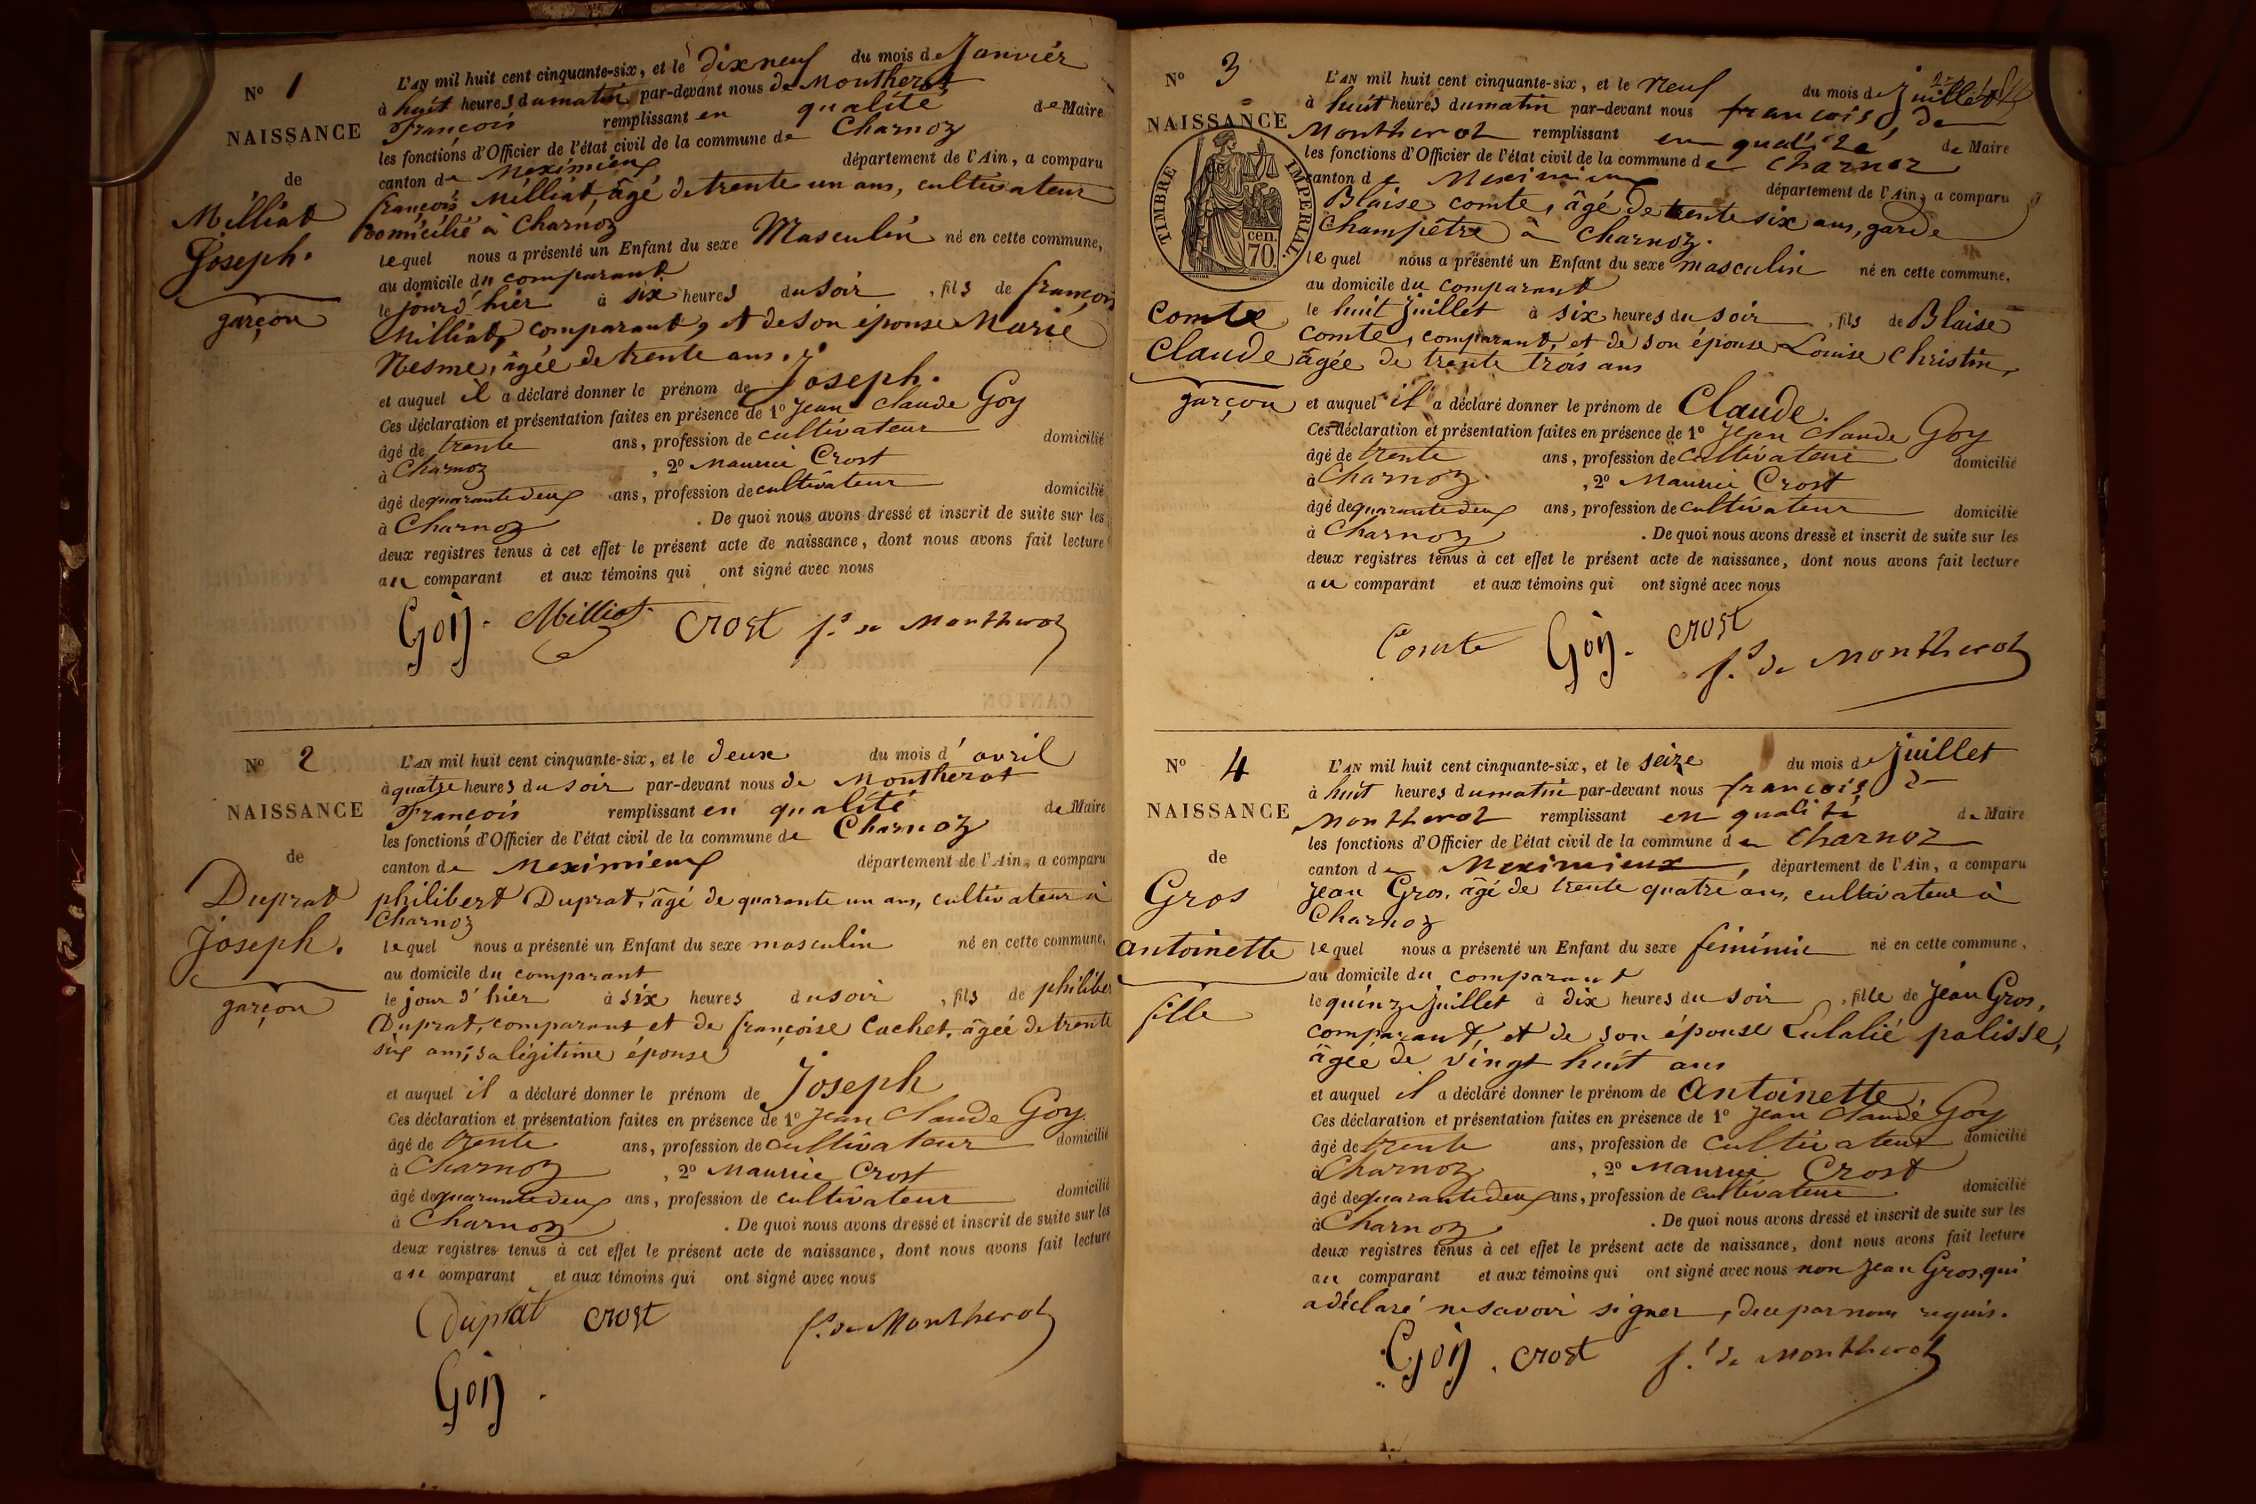 N° 1
NAISSANCE
de
Milliat
Joseph.
garçon
L'AN mil huit cent cinquante-six, et le dix neuf du mois de Janvier
à huit heures du matin par-devant nous de Montherot
François remplissant en qualité de Maire
les fonctions d'Officier de l'état civil de la commune de Charnoz
canton de Meximieux département de l'Ain, a comparu
françois Milliat, âgé de trente un ans, cultivateur
domicilié à Charnoz
lequel nous a présenté un Enfant du sexe Masculin né en cette commune,
au domicile du comparant
le jour d'hier à six heures du soir, fils de françois
Milliat, comparant, et de son épouse Marie
Nesme, âgée de trente ans.
et auquel il a déclaré donner le prénom de Joseph.
Ces déclaration et présentation faites en présence de 1° Jean Claude Goy
âgé de trente ans, profession de cultivateur domicilié
à Charnoz, 2° Maurice Crost
âgé de quarante deux ans, profession de cultivateur domicilié
à Charnoz. De quoi nous avons dressé et inscrit de suite sur les
deux registres tenus à cet effet le présent acte de naissance, dont nous avons fait lecture
au comparant et aux témoins qui ont signé avec nous
Goÿ. Milliat crost f.s de Montherot
N° 2
NAISSANCE
de
Duprat
Joseph.
garçon
L'AN mil huit cent cinquante-six, et le deux du mois d'avril
à quatre heures du soir par-devant nous de Montherot
François remplissant en qualité de Maire
les fonctions d'Officier de l'état civil de la commune de Charnoz
canton de Meximieux département de l'Ain, a comparu
philibert Duprat, âgé de quarante un ans, cultivateur à
Charnoz
lequel nous a présenté un Enfant du sexe masculin né en cette commune,
au domicile du comparant
le jour d'hier à six heures du soir, fils de philibert
Duprat, comparant et de françoise Cachet, âgée de trente
six ans, sa légitime épouse
et auquel il a déclaré donner le prénom de Joseph
Ces déclaration et présentation faites en présence de 1° Jean Claude Goy.
âgé de trente ans, profession de cultivateur domicilié
à Charnoz, 2° Maurice Crost
âgé de quarante deux ans, profession de cultivateur domicilié
à Charnoz. De quoi nous avons dressé et inscrit de suite sur les
deux registres tenus à cet effet le présent acte de naissance, dont nous avons fait lecture
au comparant et aux témoins qui ont signé avec nous
Duprat crost f.s de Montherot
Goÿ.
N° 3
NAISSANCE
TIMBRE IMPERIAL
70 cen.
Comte
Claude
garçon
L'AN mil huit cent cinquante-six, et le neuf du mois de juillet
à huit heures du matin par-devant nous françois, de
Montherot remplissant en qualité de Maire
les fonctions d'Officier de l'état civil de la commune de Charnoz
canton de Meximieux département de l'Ain, a comparu
Blaise comte, âgé de trente six ans, garde
Champêtre à Charnoz.
lequel nous a présenté un Enfant du sexe masculin né en cette commune,
au domicile du comparant
le huit juillet à six heures du soir, fils de Blaise
comte, comparant, et de son épouse Louise Christin,
âgée de trente trois ans
et auquel il a déclaré donner le prénom de Claude.
Ces déclaration et présentation faites en présence de 1° Jean Claude Goy
âgé de trente ans, profession de cultivateur domicilié
à Charnoz, 2° Maurice Crost
âgé de quarante deux ans, profession de cultivateur domicilié
à Charnoz. De quoi nous avons dressé et inscrit de suite sur les
deux registres tenus à cet effet le présent acte de naissance, dont nous avons fait lecture
au comparant et aux témoins qui ont signé avec nous
Comte Goÿ. crost
f.s de Montherot
N° 4
NAISSANCE
de
Gros
antoinette
fille
L'AN mil huit cent cinquante-six, et le seize du mois de juillet
à huit heures du matin par-devant nous françois de
Montherot remplissant en qualité de Maire
les fonctions d'Officier de l'état civil de la commune de Charnoz
canton de Meximieux, département de l'Ain, a comparu
jean Gros, âgé de trente quatre ans, cultivateur à
Charnoz
lequel nous a présenté un Enfant du sexe féminin né en cette commune,
au domicile du comparant
le quinze juillet à dix heures du soir, fille de jean Gros,
comparant, et de son épouse Eulalie palisse,
âgée de vingt huit ans
et auquel il a déclaré donner le prénom de Antoinette.
Ces déclaration et présentation faites en présence de 1° Jean Claude Goy
âgé de trente ans, profession de cultivateur domicilié
à Charnoz, 2° Maurice Crost
âgé de quarante deux ans, profession de cultivateur domicilié
à Charnoz. De quoi nous avons dressé et inscrit de suite sur les
deux registres tenus à cet effet le présent acte de naissance, dont nous avons fait lecture
au comparant et aux témoins qui ont signé avec nous non jean Gros, qui
a déclaré ne savoir signer, de ce par nous requis.
Goÿ. crost f.s de Montherot